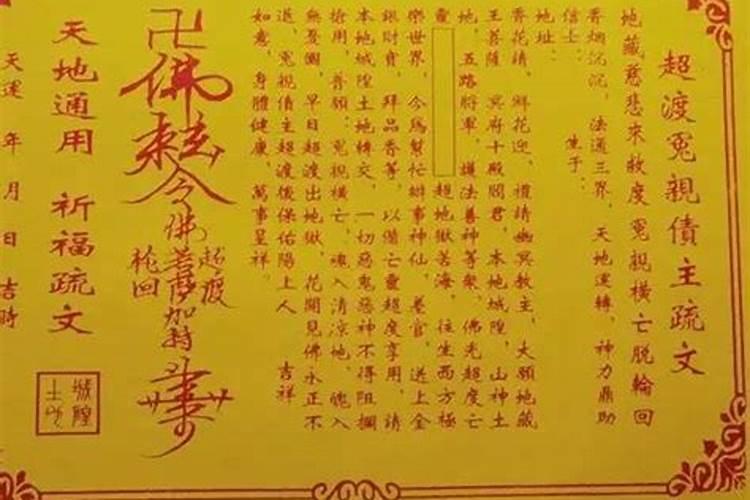 超渡冤親債主疏文
地藏慈悲來救度 冤親橫亡脫輪回
香烟沉沉，法通三界，天地運轉，神力鼎助
信士： 生于：
地址：
香花請，鮮花迎，禮請幽冥教主，大願地藏
王菩薩 冥府十殿閻君，本地城隍，山神土
地，五路將軍，護法善神等衆，佛光超度亡
靈 超地獄苦海，往生西方極
樂世界，今爲幫忙辦事神仙，差官，送上金
銀財寶，拜品香等，以備亡靈超度享用，請
本地城隍土地轉交，一切惡鬼惡神不得阻攔
搶用，普願：冤親橫亡，魂入清凉地，魄入
無憂國，早日超渡出地獄，花開見佛永正不
退，冤親債主超渡後保佑陽上人 吉祥
如意，身體健康，萬事呈祥。
卍
佛
敕
令
佛菩薩加持
超度
輪回
天地通用 祈福疏文
城隍
土地
天運 年 月 日 吉時